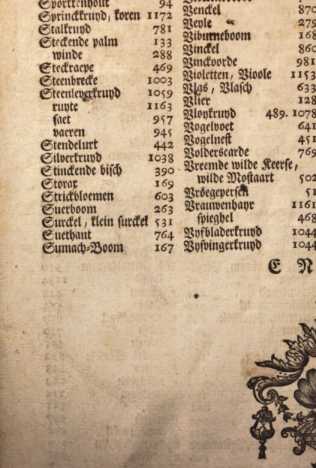 Sporckenhout 94
Sprinckkruyd, koren 1172
Stalkruyd 781
Steckende palm 133
winde 288
Steckraepe 469
Steenbreke 1003
Steenleverkruyd 1059
ruyte 1163
saet 957
vaeren 945
Stendelwurt 442
Silverkruyd 1038
Stinckende bisch 390
Storax 169
Strickbloemen 603
Suerboom 263
Surckel, klein surckel 531
Suethaut 764
Sumach-Boom 167
Venckel 870
Veyle 279
Viburneboom 168
Vinckel 860
Vinckoorde 981
Violetten, Vioole 1153
Vlas, Vlasch 633
Vlier 128
Vloykruyd 489. 1078
Vogelvoet 641
Vogelnest 451
Volderscarde 769
Vreemde wilde Keerse,
wilde Mostaart 502
Vroegepersen 51
Vrauwenhayr 1161
spieghel 468
Vyfbladerkruyd 1044
Vyfvingerkruyd 1044
E N